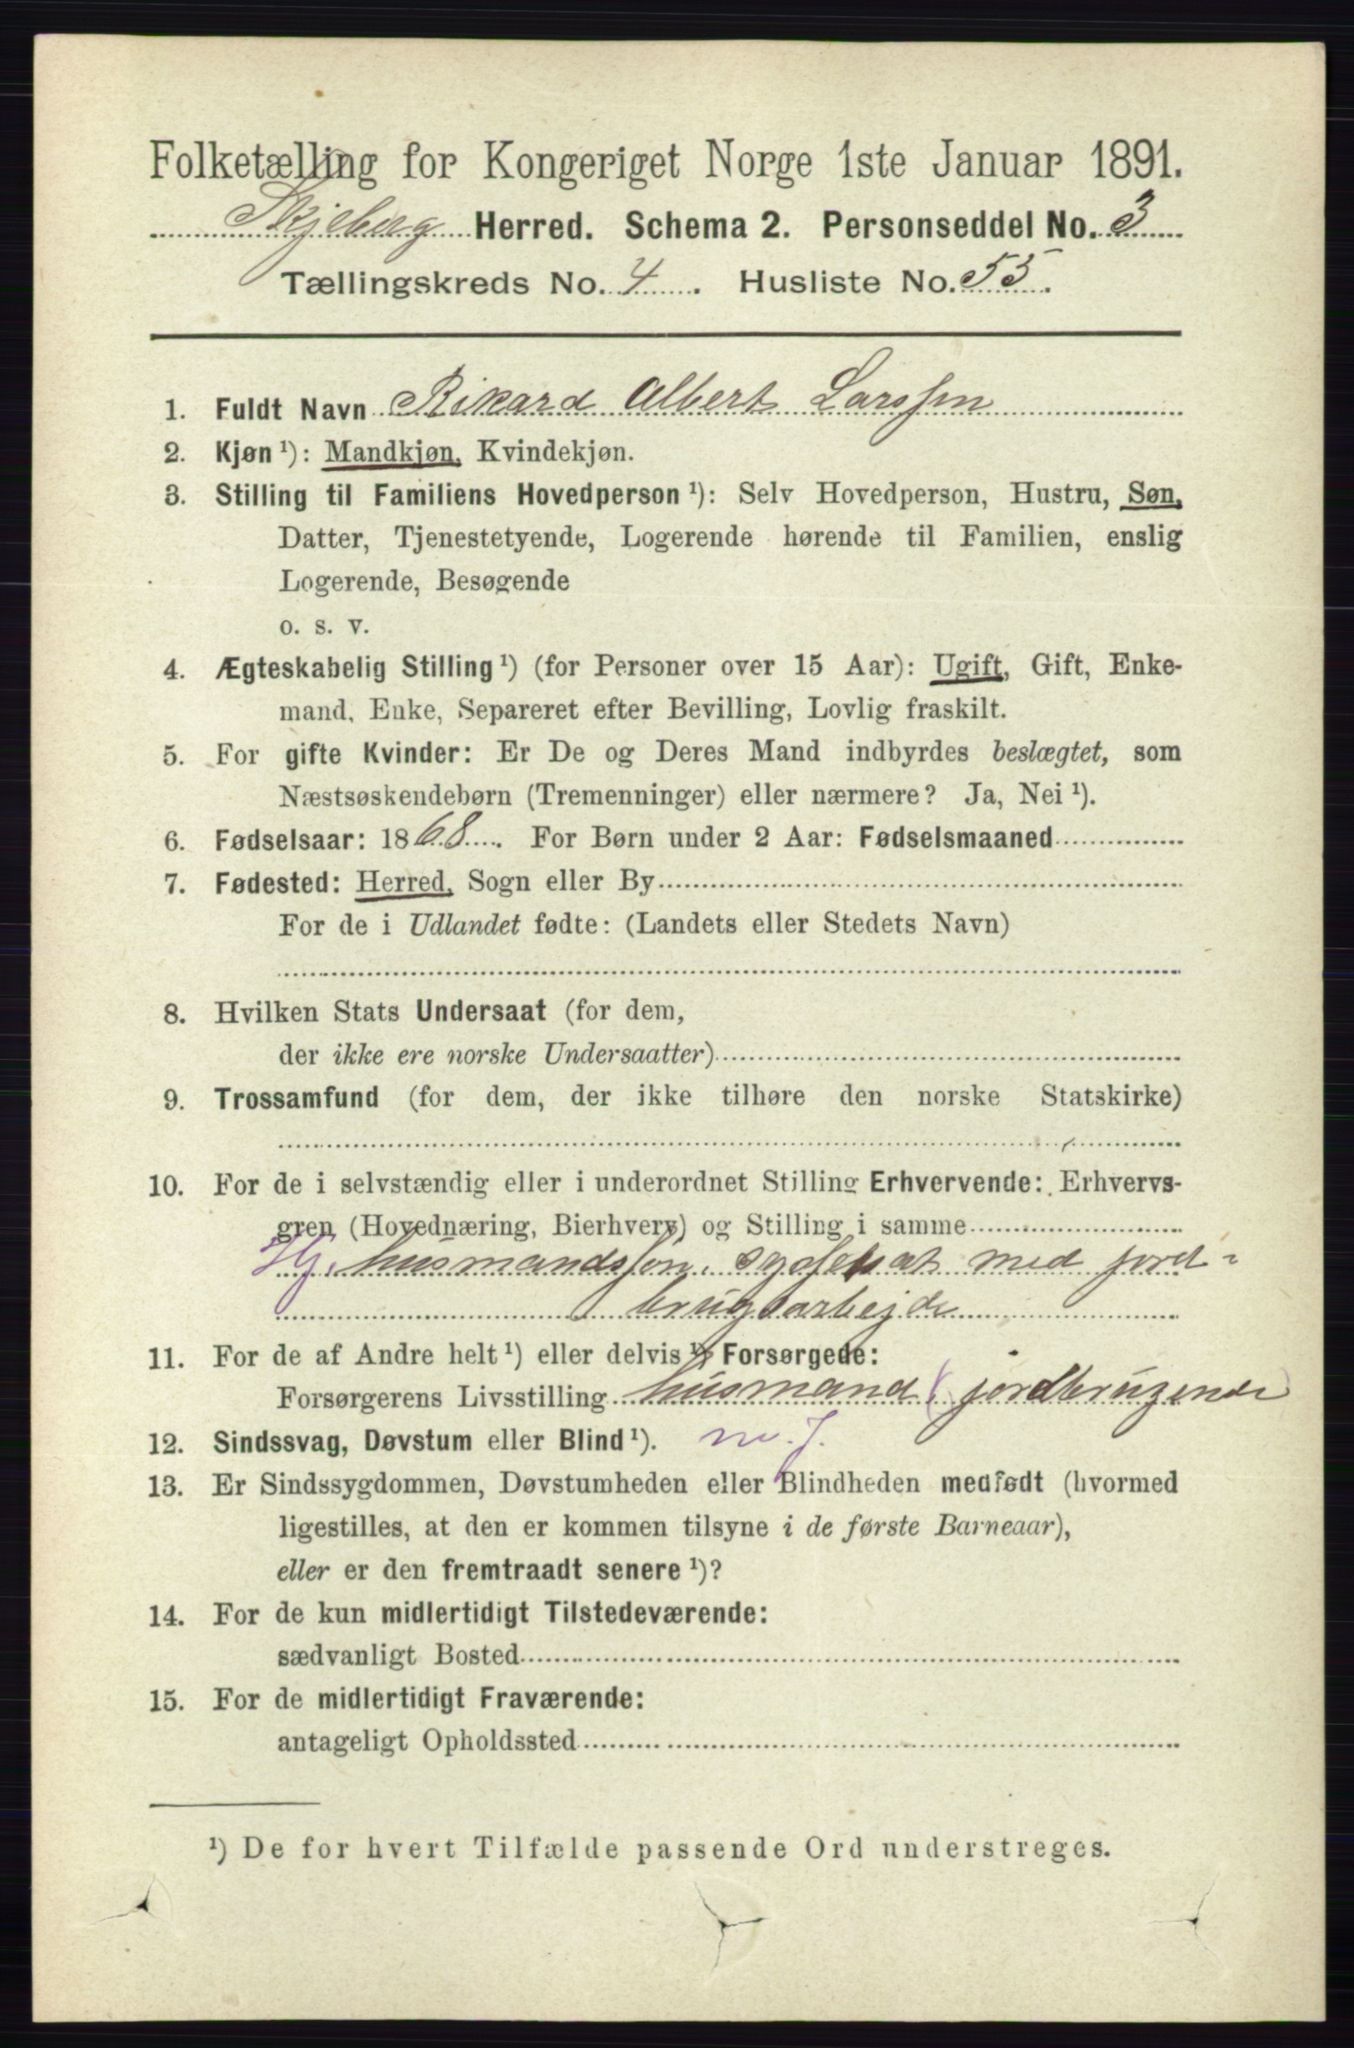 Folketælling for Kongeriget Norge 1ste Januar 1891.
Skjeberg Herred. Schema 2. Personseddel No. 3
Tællingskreds No. 4. Husliste No. 55.
1. Fuldt Navn Rikard Albert Larssen
2. Kjøn ¹): Mandkjøn, Kvindekjøn.
3. Stilling til Familiens Hovedperson ¹): Selv Hovedperson, Hustru, Søn,
Datter, Tjenestetyende, Logerende hørende til Familien, enslig
Logerende, Besøgende
o. s. v.
4. Ægteskabelig Stilling ¹) (for Personer over 15 Aar): Ugift, Gift, Enke-
mand, Enke, Separeret efter Bevilling, Lovlig fraskilt.
5. For gifte Kvinder: Er De og Deres Mand indbyrdes beslægtet, som
Næstsøskendebørn (Tremenninger) eller nærmere? Ja, Nei ¹).
6. Fødselsaar: 1868. For Børn under 2 Aar: Fødselsmaaned
7. Fødested: Herred, Sogn eller By
For de i Udlandet fødte: (Landets eller Stedets Navn)
8. Hvilken Stats Undersaat (for dem,
der ikke ere norske Undersaatter)
9. Trossamfund (for dem, der ikke tilhøre den norske Statskirke)
10. For de i selvstændig eller i underordnet Stilling Erhvervende: Erhvervs-
gren (Hovednæring, Bierhverv) og Stilling i samme
Hj. husmandssøn, sysselsat med jord-
brugsarbejde
11. For de af Andre helt ¹) eller delvis ¹) Forsørgede:
Forsørgerens Livsstilling husmand, jordbrugende
12. Sindssvag, Døvstum eller Blind ¹). m. J.
13. Er Sindssygdommen, Døvstumheden eller Blindheden medfødt (hvormed
ligestilles, at den er kommen tilsyne i de første Barneaar),
eller er den fremtraadt senere ¹)?
14. For de kun midlertidigt Tilstedeværende:
sædvanligt Bosted
15. For de midlertidigt Fraværende:
antageligt Opholdssted
¹) De for hvert Tilfælde passende Ord understreges.